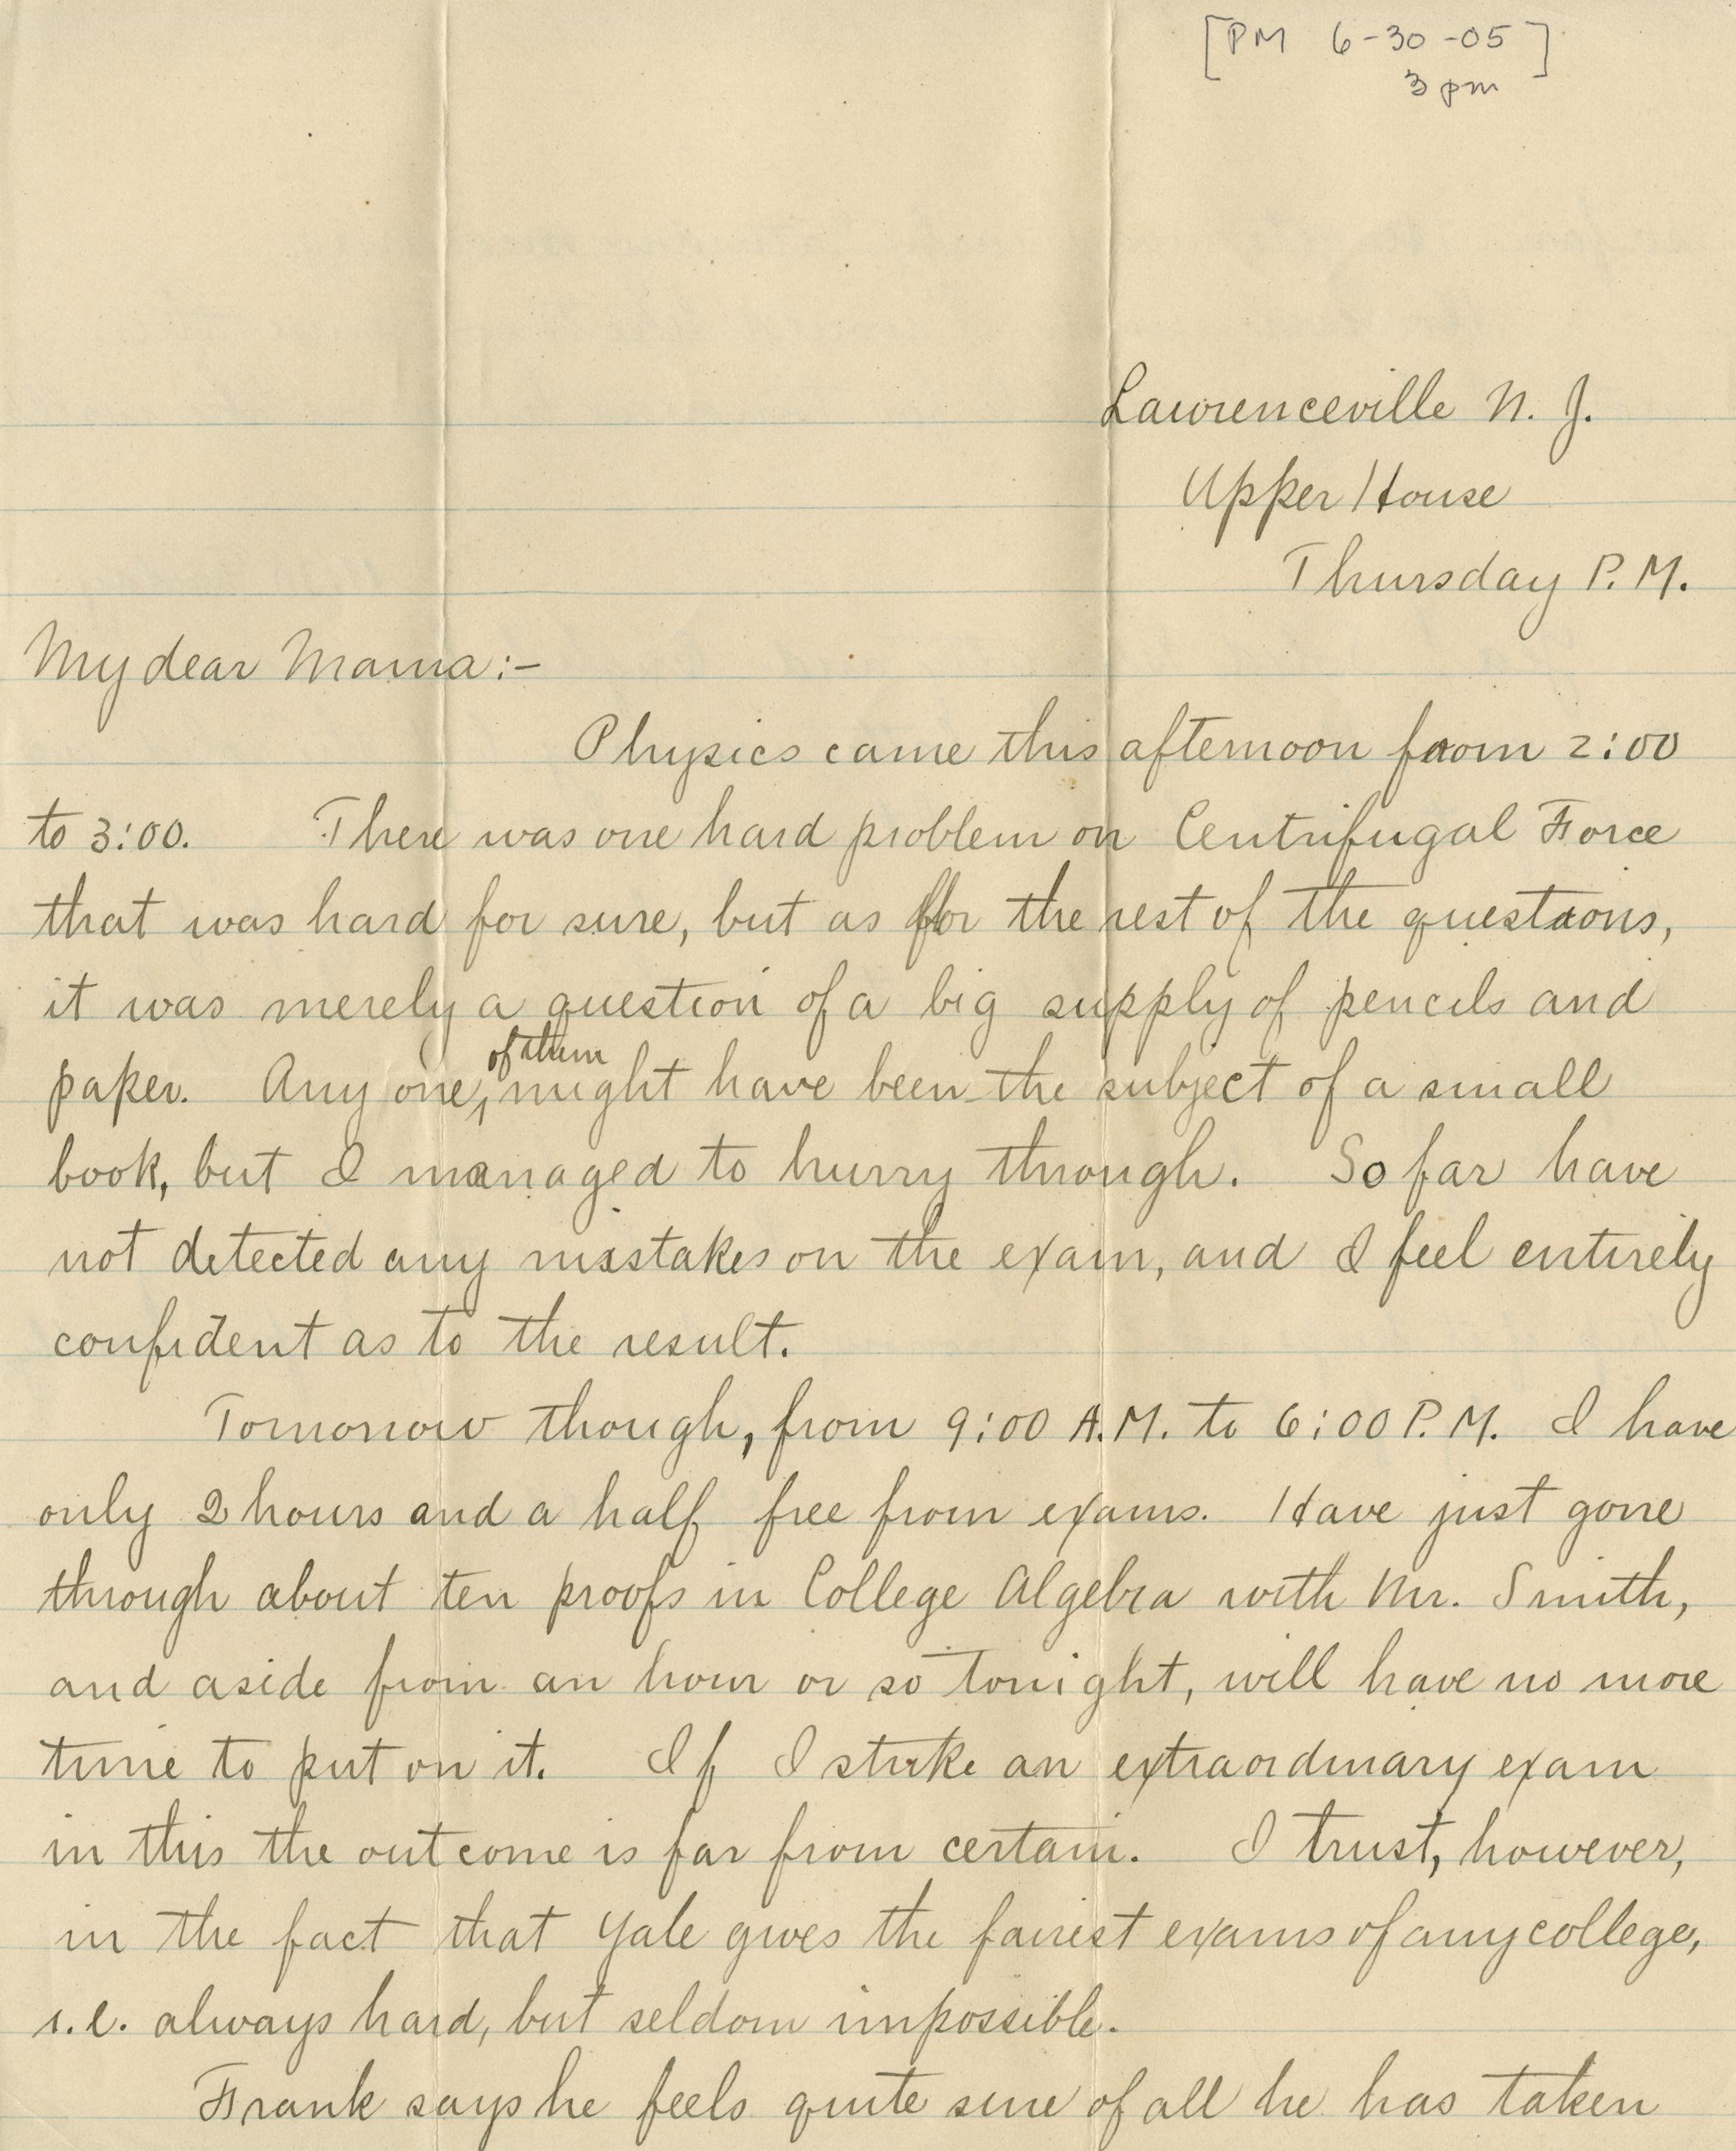 [PM 6-30-05]
3 pm
Lawrenceville N. J.
Upper House
Thursday P. M.
My dear Mama:-
Physics came this afternoon from 2:00
to 3:00. There was one hard problem on Centrifugal Force
that was hard for sure, but as for the rest of the questions,
it was merely a question of a big supply of pencils and
of them
paper. Any one, might have been the subject of a small
book, but I managed to hurry through. So far have
not detected any mistakes on the exam, and I feel entirely
confident as to the result.
Tomorrow though, from 9:00 A.M. to 6:00 P. M. I have
only 2 hours and a half free from exams. Have just gone
through about ten proofs in College Algebra with Mr. Smith,
and aside from an hour or so tonight, will have no more
time to put on it. If I strike an extraordinary exam
in this the outcome is far from certain. I trust, however,
in the fact that Yale gives the fairest exams of any college,
i.e. always hard, but seldom impossible.
Frank says he feels quite sure of all he has taken